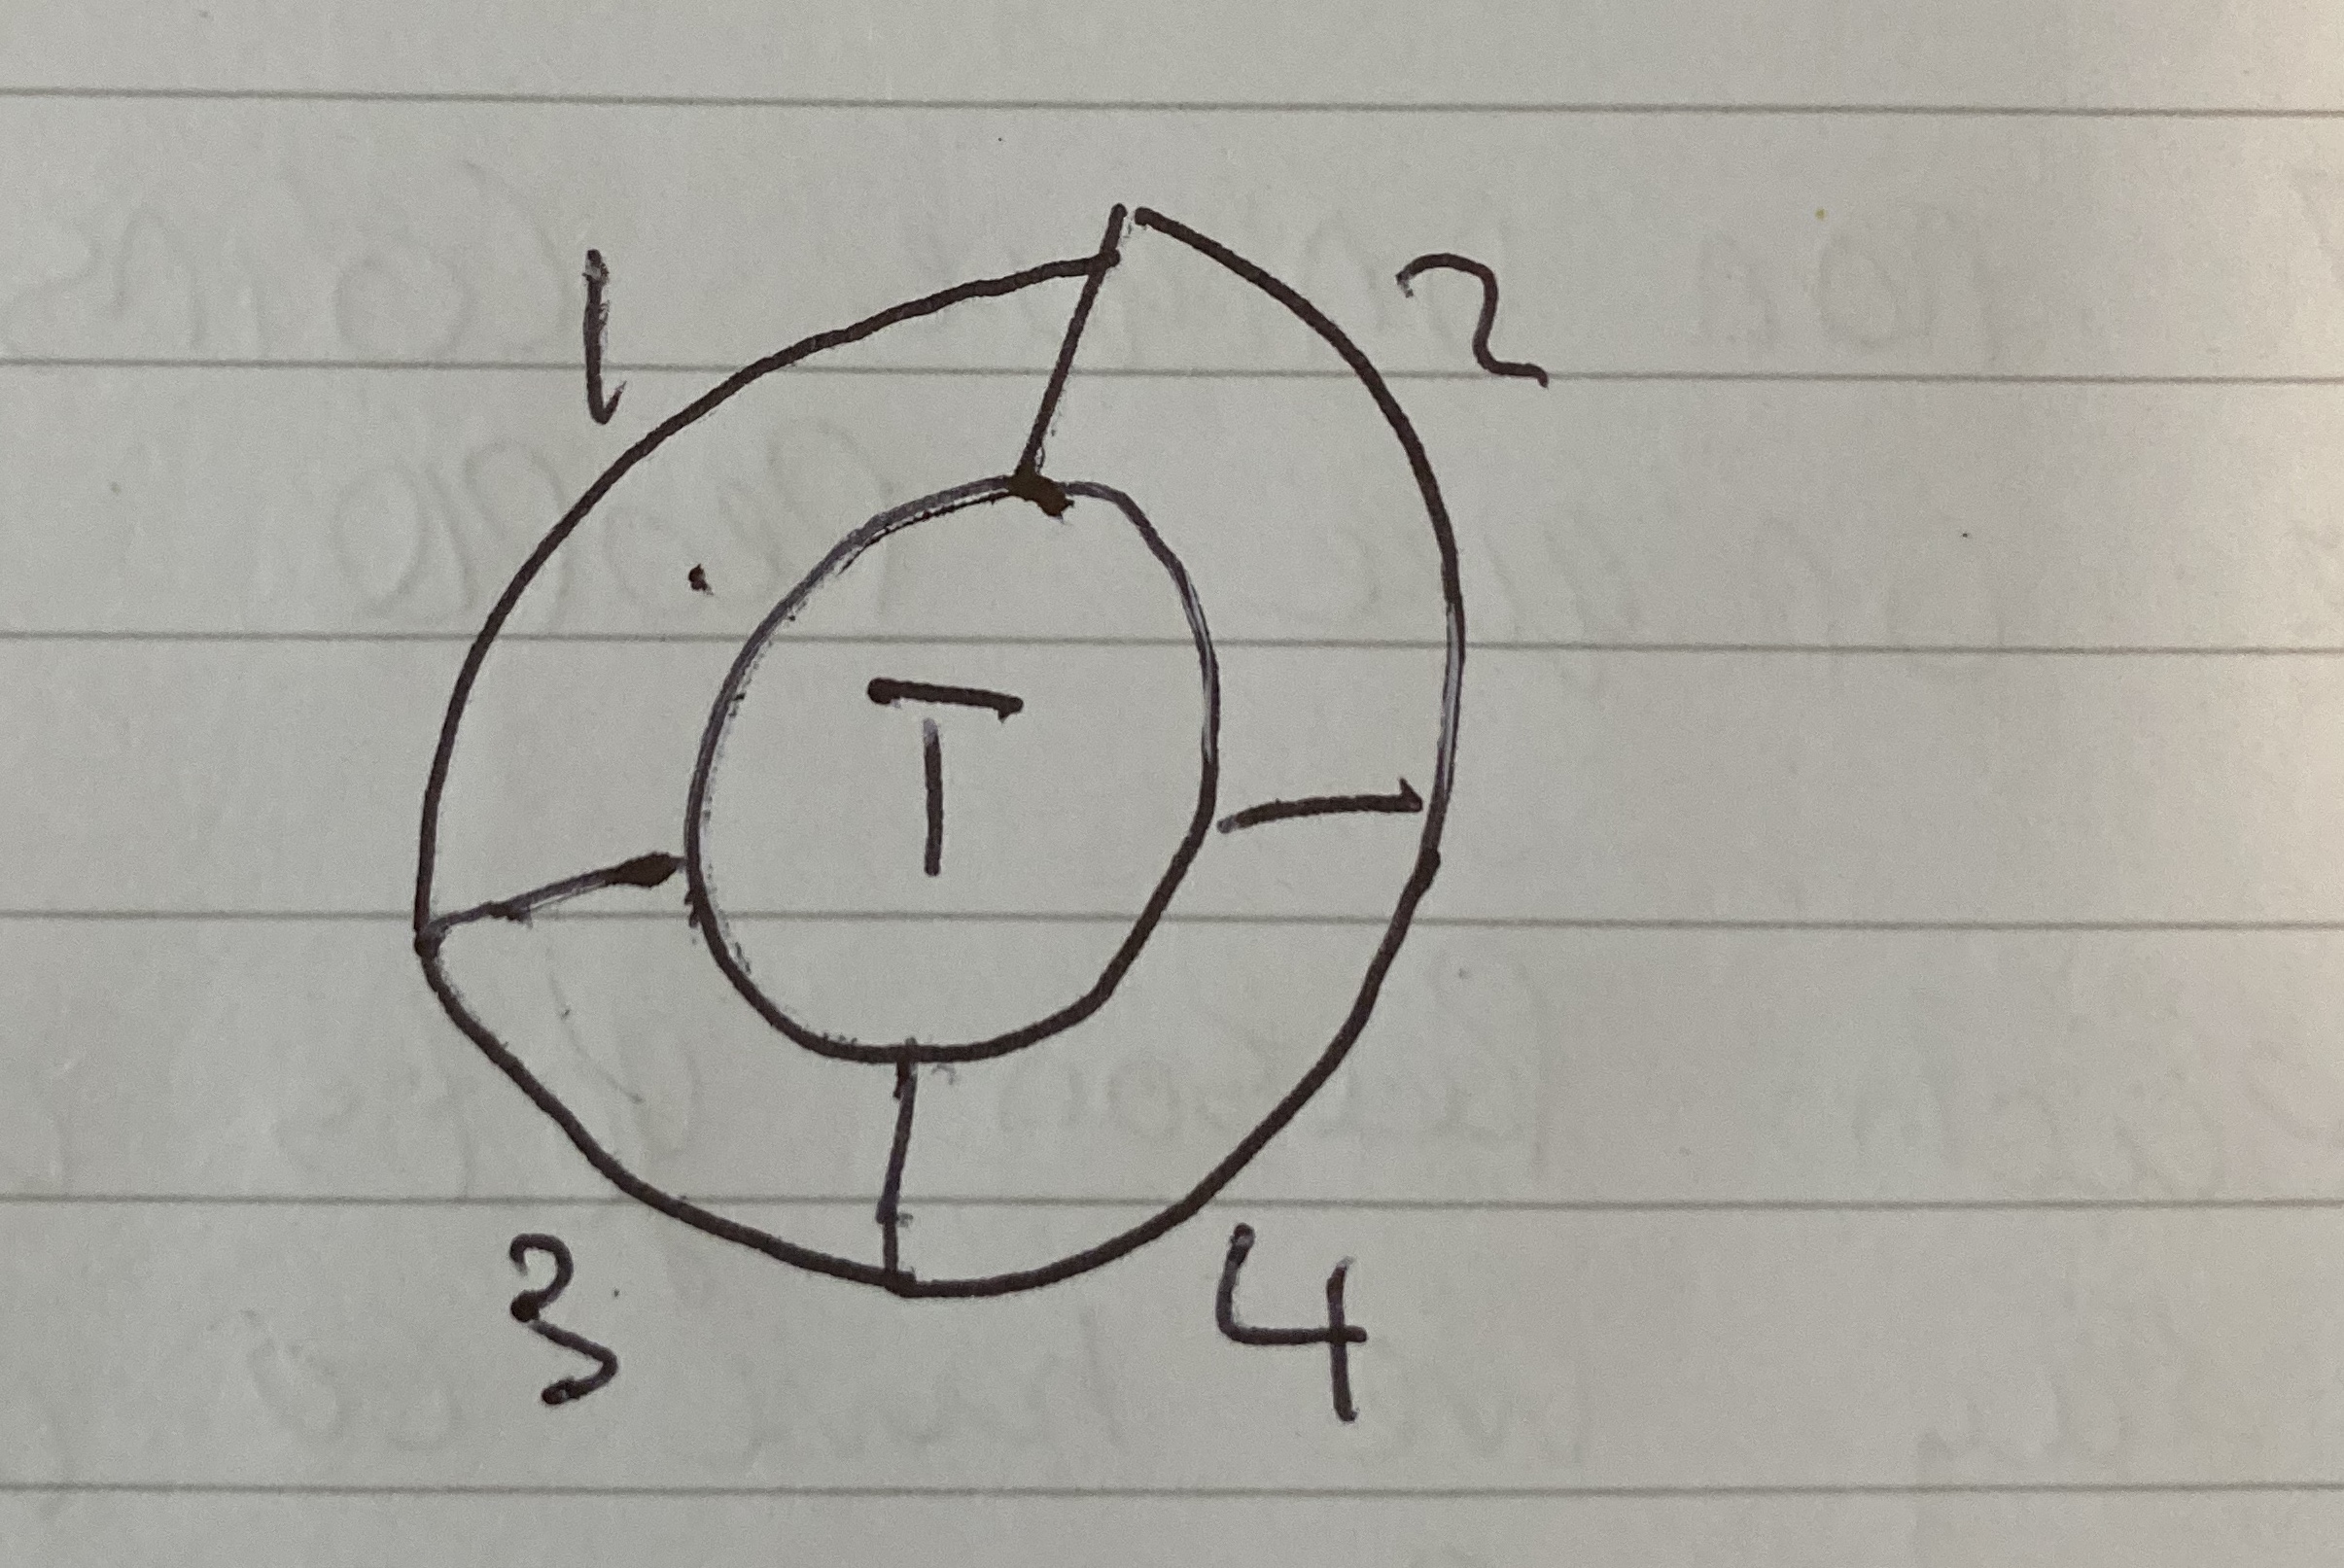 1 2
T
3 4